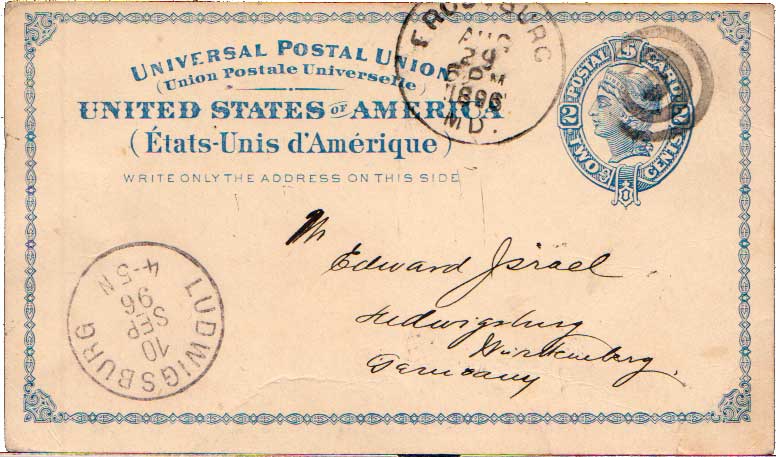 UNIVERSAL POSTAL UNION
(Union Postale Universelle)
UNITED STATES OF AMERICA
(États-Unis d'Amérique)
WRITE ONLY THE ADDRESS ON THIS SIDE
FROSTBURG
AUG
29
6 PM
1896
MD.
2 POSTAL U.S CARD 2
TWO CENTS
Mr
Edward Israel.
Ludwigsburg
Würtemberg.
Germany
LUDWIGSBURG
10
SEP
96
4-5 N